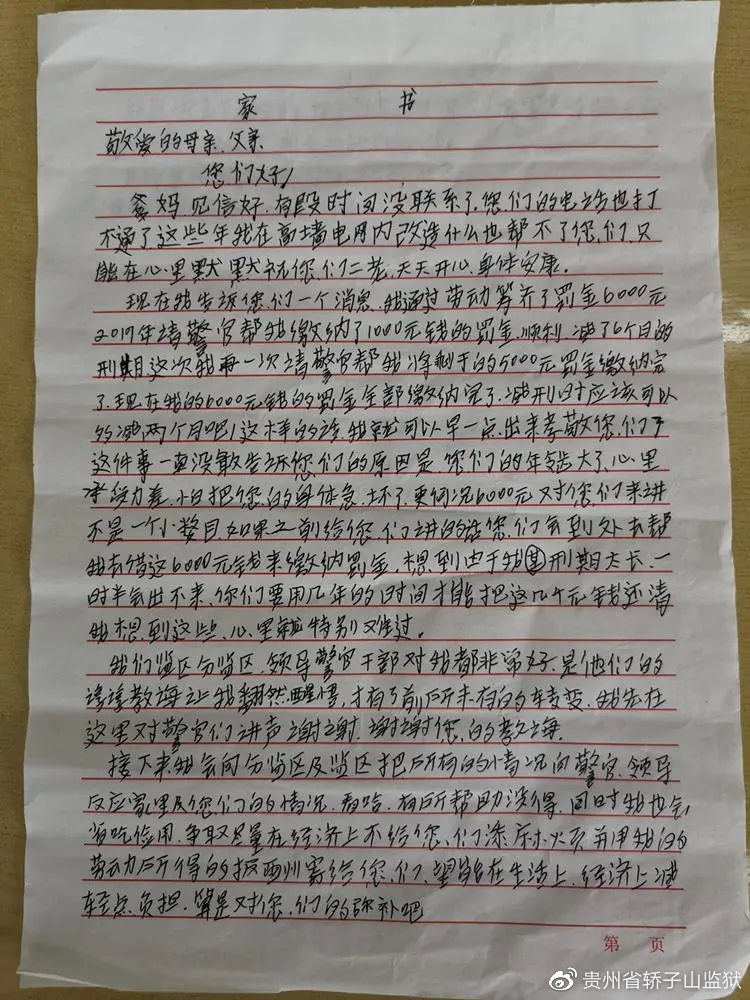 家 书
敬爱的母亲、父亲
您们好!
爹妈见信好,有段时间没联系了,您们的电话也打
不通了这些年我在高墙电网内改造什么也帮不了您们,只
能在心里默默祝您们二老,天天开心,身体安康。
现在我告诉您们一个消息,我通过劳动筹齐了罚金6000元
2019年请警官帮我缴纳了1000元钱的罚金,顺利减了6个月的
刑期这次我再一次请警官帮我将剩于的5000元罚金缴纳完
了,现在我的6000元钱的罚金全部缴纳完了,减刑时应该可以
多减两个月吧!这样的话,我就可以早一点出来孝敬您们了
这件事一直没敢告诉您们的原因是,您们的年龄大了,心里
承受力差,怕把您的身体急坏了,更何况6000元对您们来讲
不是一个小数目,如果之前给您们讲的话您们会到处去帮
我去借这6000元钱来缴纳罚金,想到由于我刑期太长,一
时半会出不来,你们要用几年的时间才能把这几千元钱还清
我想到这些,心里就特别难过。
我们监区分监区,领导警官干部对我都非常好,是他们的
谆谆教诲让我翻然醒悟,才有了前所未有的转变,我先在
这里对警官们讲声谢谢,谢谢您的教诲。
接下来我会向分监区及监区把所有的情况向警官、领导
反应家里及您们的情况,看哈,有所帮助没得,同时我也会
省吃俭用,争取尽量在经济上不给您们添麻烦并用我的
劳动所得的报酬寄给您们,望能在生活上,经济上减
轻点负担,算是对您们的弥补吧
第 页
贵州省轿子山监狱